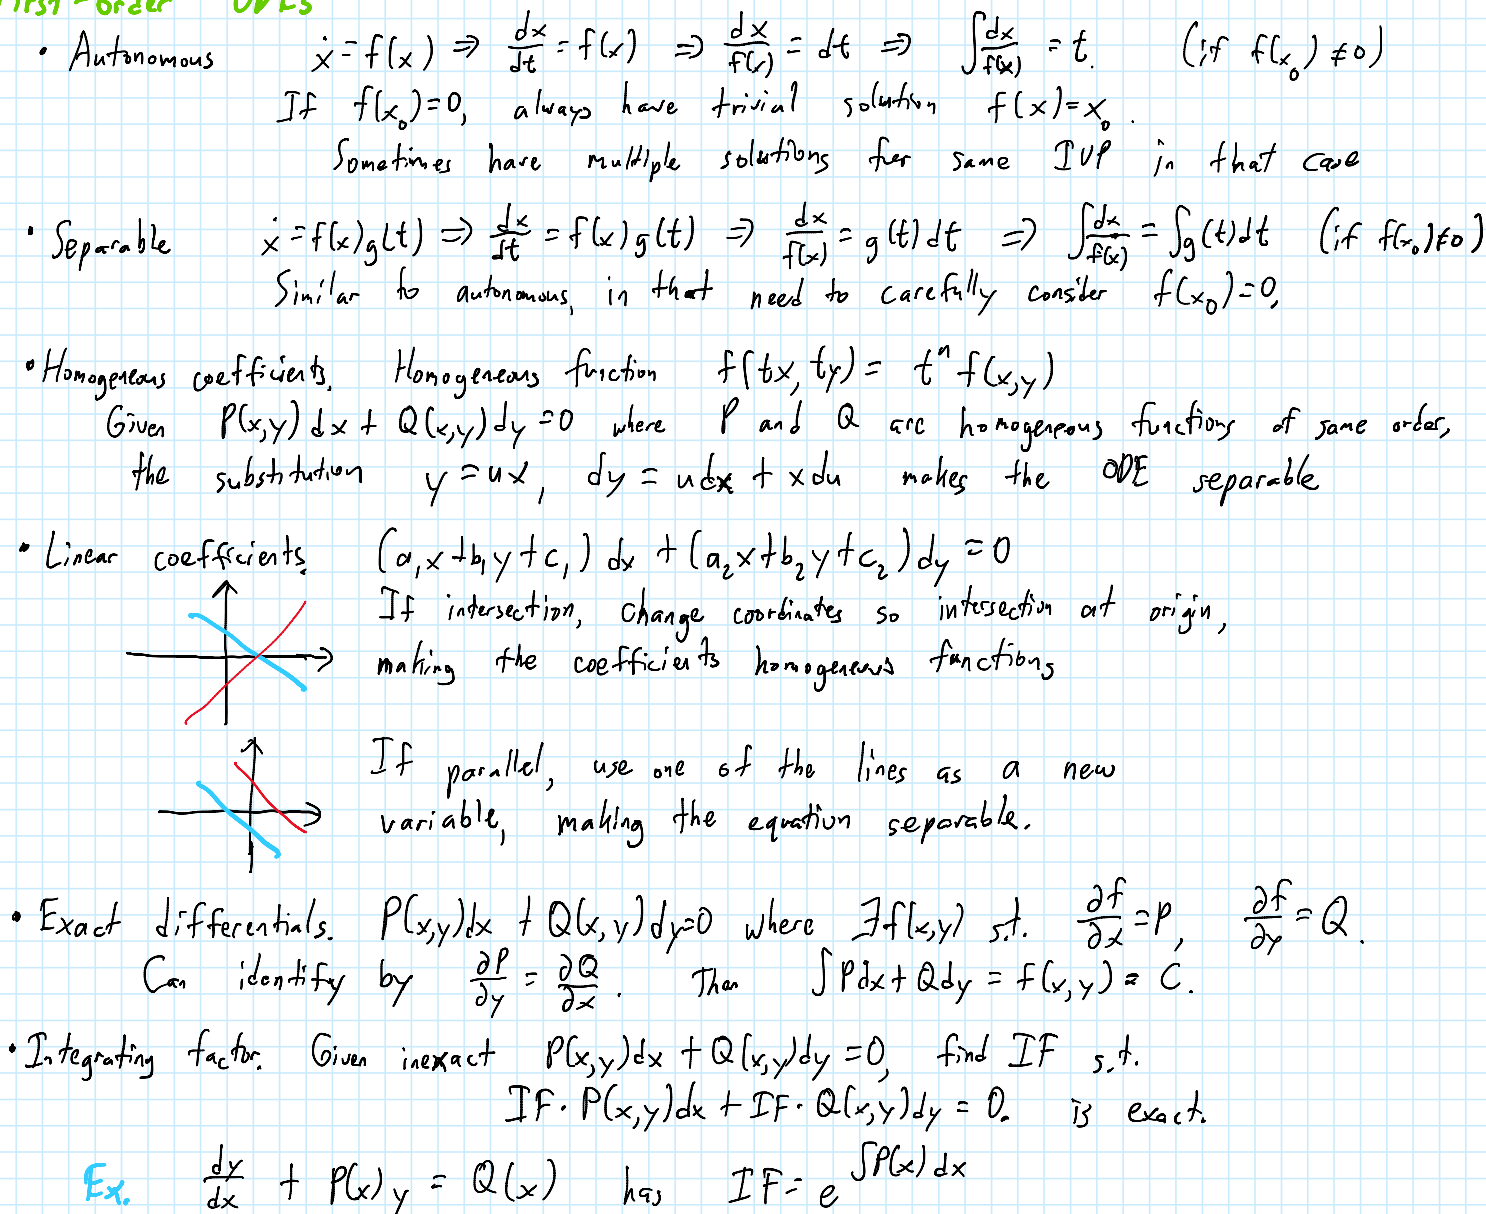 First-order ODEs
• Autonomous ẋ = f(x) ⇒ dx/dt = f(x) ⇒ dx/f(x) = dt ⇒ ∫dx/f(x) = t. (if f(x₀) ≠ 0)
If f(x₀)=0, always have trivial solution f(x)=x₀.
Sometimes have multiple solutions for same IVP in that case
• Separable ẋ = f(x)g(t) ⇒ dx/dt = f(x)g(t) ⇒ dx/f(x) = g(t)dt ⇒ ∫dx/f(x) = ∫g(t)dt (if f(x₀)≠0)
Similar to autonomous, in that need to carefully consider f(x₀)=0,
• Homogeneous coefficients. Homogeneous function f(tx, ty) = tⁿ f(x,y)
Given P(x,y)dx + Q(x,y)dy=0 where P and Q are homogeneous functions of same order,
the substitution y = ux, dy = udx + xdu makes the ODE separable
• Linear coefficients. (a₁x+b₁y+c₁)dx + (a₂x+b₂y+c₂)dy = 0
If intersection, change coordinates so intersection at origin,
making the coefficients homogeneous functions
If parallel, use one of the lines as a new
variable, making the equation separable.
• Exact differentials. P(x,y)dx + Q(x,y)dy=0 where ∃f(x,y) s.t. ∂f/∂x = P, ∂f/∂y = Q.
Can identify by ∂P/∂y = ∂Q/∂x. Then ∫Pdx + Qdy = f(x,y) = C.
• Integrating factor. Given inexact P(x,y)dx + Q(x,y)dy = 0, find IF s.t.
IF·P(x,y)dx + IF·Q(x,y)dy = 0. is exact.
Ex. dy/dx + P(x)y = Q(x) has IF = e^∫P(x)dx